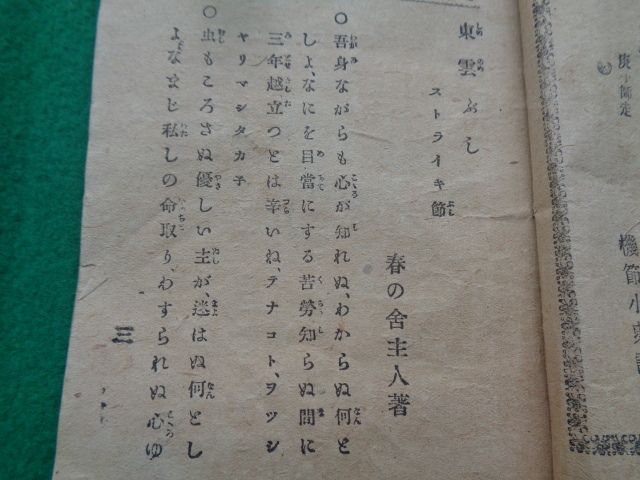 東雲ぶし
ストライキ節
春の舎主人著
○吾身ながらも心が知れぬ、わからぬ何と
しよ、なにを目當にする苦勞知らぬ間に
三年越立つとは辛いね、テナコト、ヲツシ
ヤリマシタカ子
○虫もころさぬ優しい主が、迷はぬ何とし
よ、なまじ私しの命取り、わすられぬ心ゆ
三